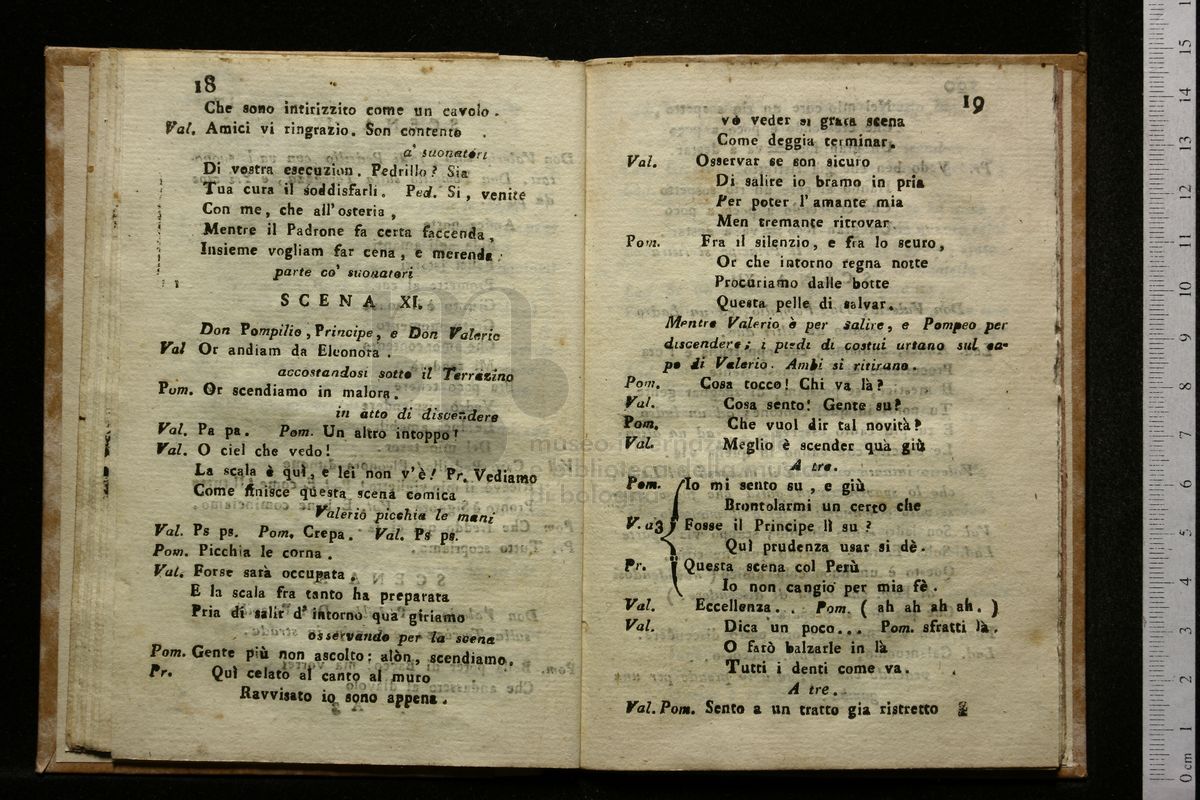 18
Che sono intirizzito come un cavolo.
Val. Amici vi ringrazio. Son contento .
a' suonatori
Di vostra esecuzion. Pedrillo? Sia
Tua cura il soddisfarli. Ped. Si, venite
Con me, che all'osteria,
Mentre il Padrone fa certa faccenda,
Insieme vogliam far cena, e merenda.
parte co' suonatori
SCENA XI.
Don Pompilio, Principe, e Don Valerio
Val Or andiam da Eleonora .
accostandosi sotto il Terrazino
Pom. Or scendiamo in malora.
in atto di discendere
Val. Pa pa. Pom. Un altro intoppo!
Val. O ciel che vedo!
La scala è quì, e lei non v'è! Pr. Vediamo
Come finisce questa scena comica
Valerio picchia le mani
Val. Ps ps. Pom. Crepa. Val. Ps ps.
Pom. Picchia le corna .
Val. Forse sarà occupata,
E la scala fra tanto ha preparata
Pria di salir d'intorno qua giriamo
osservando per la scena
Pom. Gente più non ascolto; alòn, scendiamo.
Pr. Quì celato al canto al muro
Ravvisato io sono appena.
19
vò veder si grata scena
Come deggia terminar.
Val. Osservar se son sicuro
Di salire io bramo in pria
Per poter l'amante mia
Men tremante ritrovar.
Pom. Fra il silenzio, e fra lo scuro,
Or che intorno regna notte
Procuriamo dalle botte
Questa pelle di salvar.
Mentre Valerio è per salire, e Pompeo per
discendere; i piedi di costui urtano sul ca-
po di Valerio. Ambi si ritirano.
Pom. Cosa tocco! Chi va là?
Val. Cosa sento! Gente su?
Pom. Che vuol dir tal novità?
Val. Meglio è scender quà giù
A tre.
Pom. Io mi sento su, e giù
Brontolarmi un certo che
V. a3 Fosse il Principe lì su?
Quì prudenza usar si dè.
Pr. Questa scena col Perù
Io non cangio per mia fè.
Val. Eccellenza. . Pom. ( ah ah ah ah. )
Val. Dica un poco... Pom. sfratti là.
O farò balzarle in là
Tutti i denti come va.
A tre.
Val. Pom. Sento a un tratto gia ristretto
museo internazionale
e biblioteca della musica
di bologna